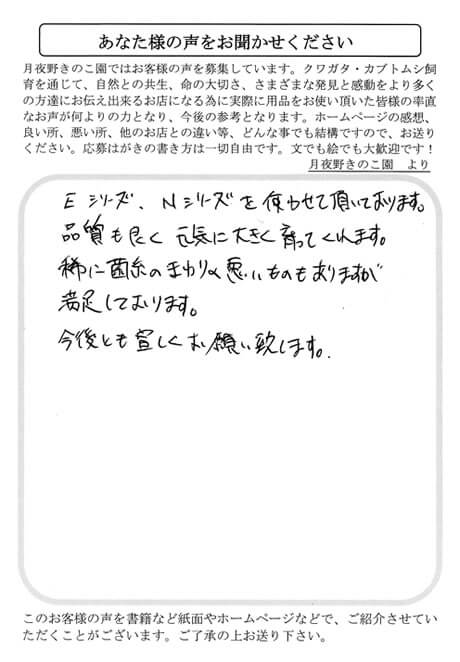 あなた様の声をお聞かせください
月夜野きのこ園ではお客様の声を募集しています。クワガタ・カブトムシ飼
育を通じて、自然との共生、命の大切さ、さまざまな発見と感動をより多く
の方達にお伝え出来るお店になる為に実際に用品をお使い頂いた皆様の率直
なお声が何よりの力となり、今後の参考となります。ホームページの感想、
良い所、悪い所、他のお店との違い等、どんな事でも結構ですので、お送り
ください。応募はがきの書き方は一切自由です。文でも絵でも大歓迎です！
月夜野きのこ園　より
Eシリーズ、Nシリーズを使わせて頂いております。
品質も良く元気に大きく育ってくれます。
稀に菌糸のまわりの悪いものもありますが
満足しております。
今後とも宜しくお願い致します。
このお客様の声を書籍など紙面やホームページなどで、ご紹介させてい
ただくことがございます。ご了承の上お送り下さい。